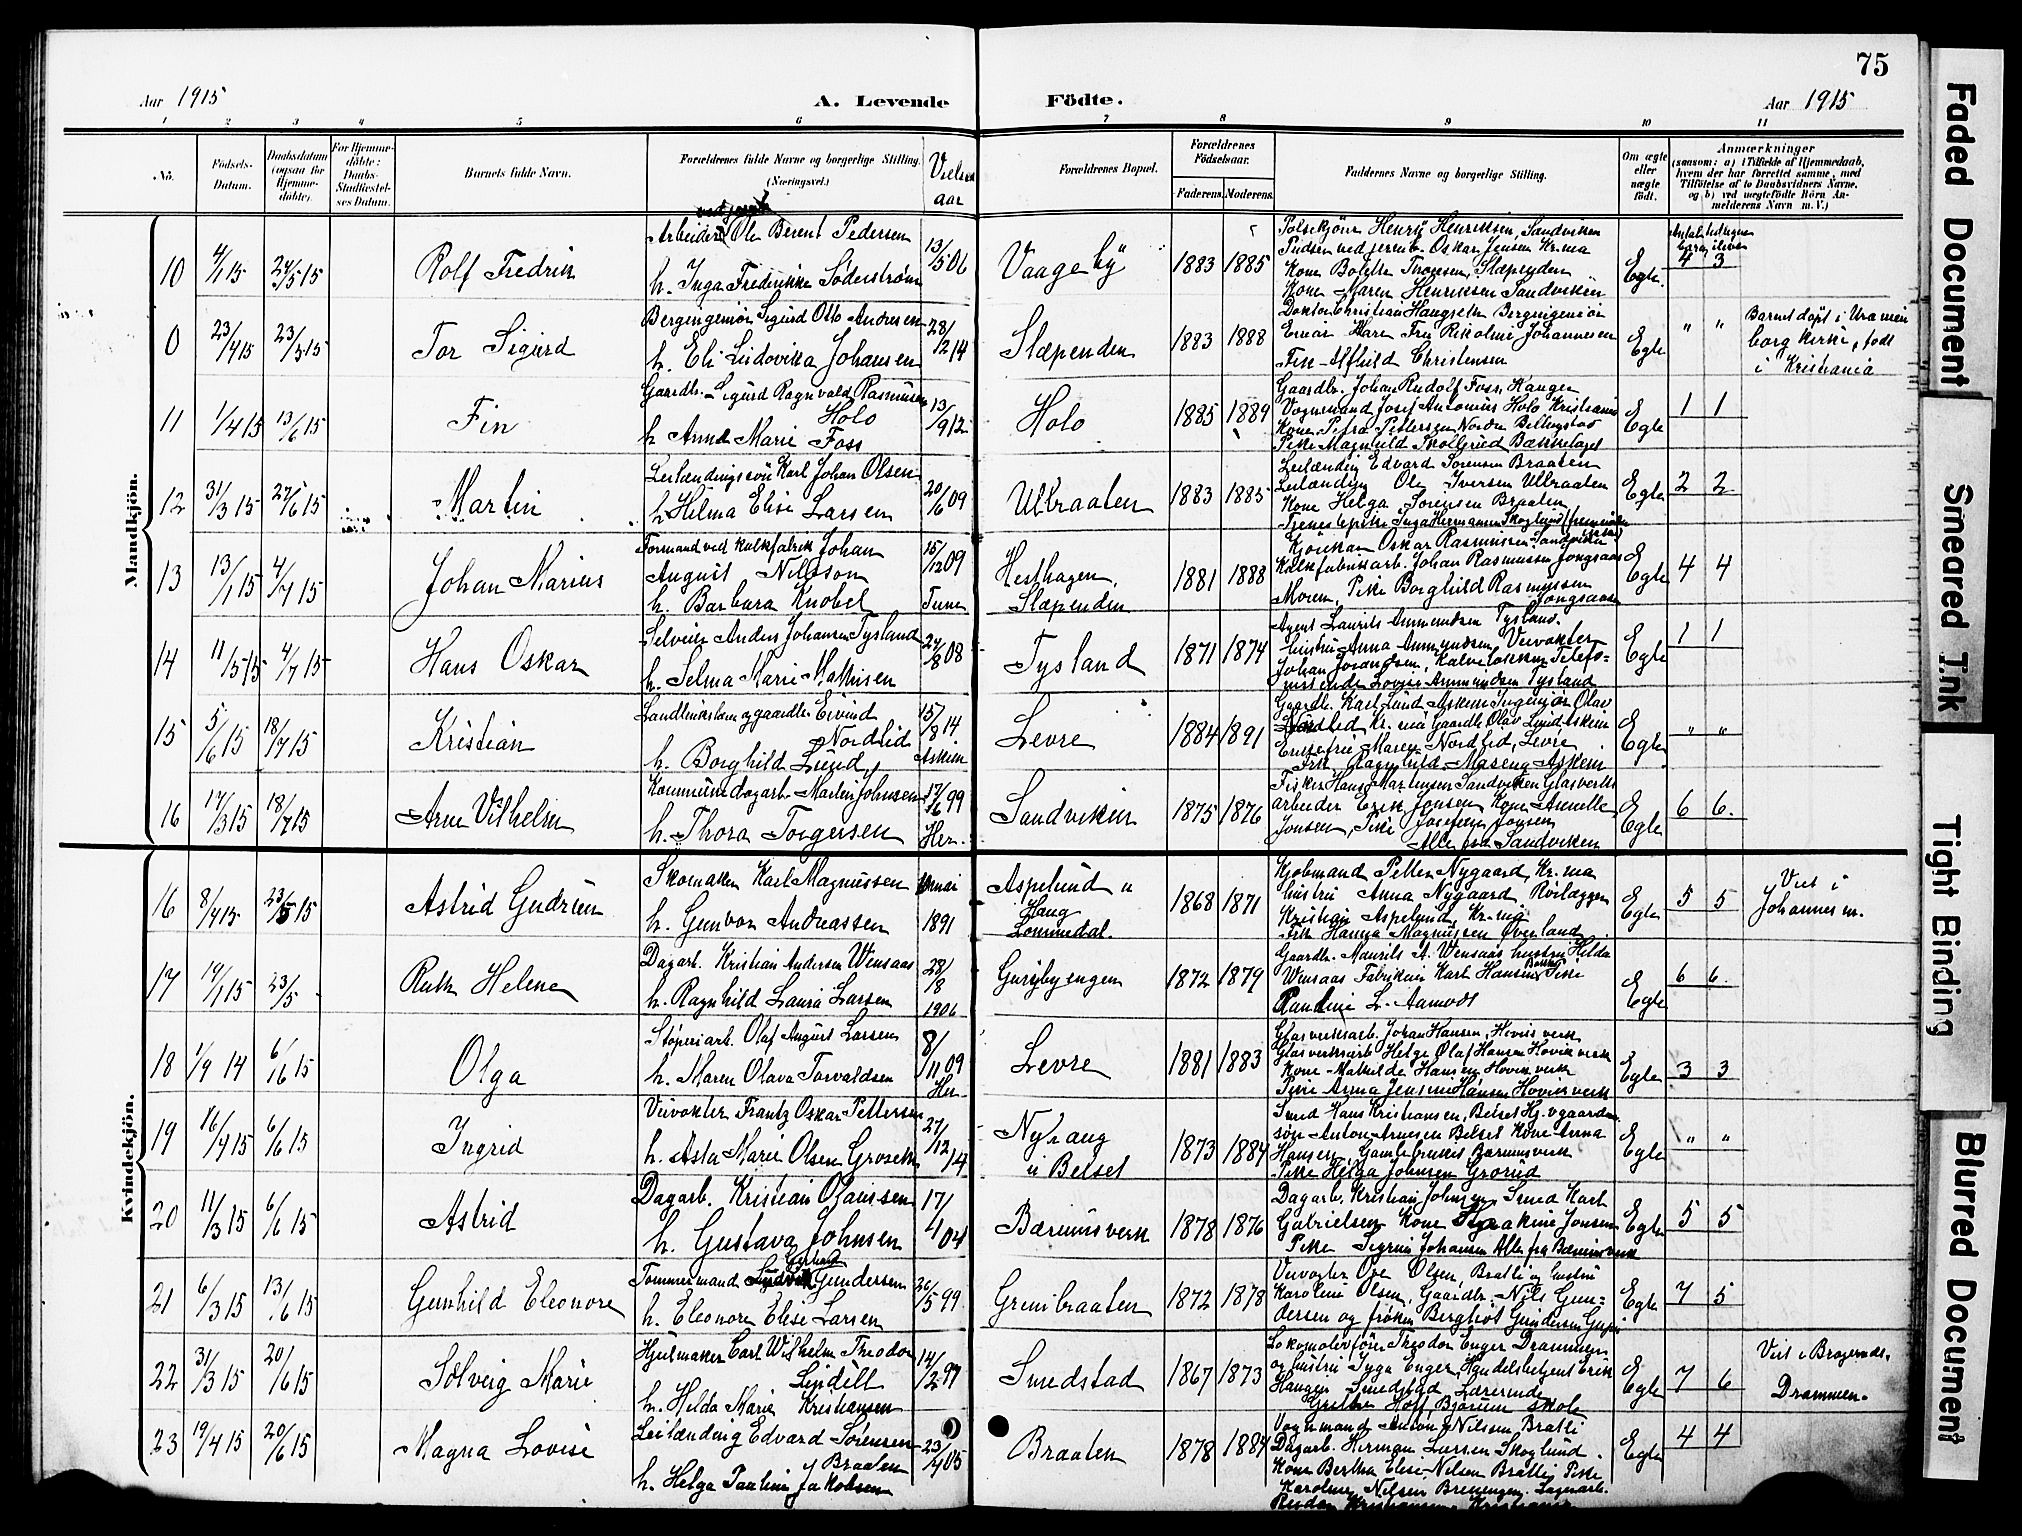 75
Aar 1915
A. Levende
Födte.
Aar 1915
1 2 3 4 5 6 7 8 9 10 11
No.
Födsels-Datum.
Daabsdatum (ogsaa for Hjemme-döbte).
For Hjemme-döbte: Daabs-Stadfæstel-ses Datum.
Barnets fulde Navn.
Forældrenes fulde Navne og borgerlige Stilling. (Næringsvei.)
Vielses aar
Forældrenes Bopæl.
Forældrenes Födselsaar.
Faderens. Moderens.
Faddernes Navne og borgerlige Stilling.
Om ægte eller uægte födt.
Anmærkninger
(saasom: a) i Tilfælde af Hjemmedaab, hvem der har forrettet samme, med Tilföielse af to Daabsvidners Navne, og b) ved uægtefödte Börn An-melderens Navn m. V.)
Mandkjön.
10 4/1 15 24/5 15 Rolf Fredrik
Arbeider Ole Berent Pedersen
h. Inga Fredrikke Söderström
13/5 06 Vaageby 1883 1885
Henry Henriksen, Sandviken
Oskar Jensen Kr.ia
Kone Bolette Thomsen, Slæpenden
Kone Maren Henriksen Sandviken
Egte 4 3
0 23/4 15 23/5 15 Tor Sigurd
Bergingeniør Sigurd Otto Andresen
h. Eli Ludovika Johansen
28/12 14 Slæpenden 1883 1888
Doktor Christian Haugseth Bergingeniør
Einar Hare Frk Rikoline Johannesen
Frk Alfhild Christensen
Egte " "
Barnet döpt i Uranien
borg kirke, födt
i Kristiania
11 1/4 15 13/6 15 Fin
Gaardbr. Sigurd Ragnvald Rasmussen
Holo
h Anna Marie Foss
13/9 12 Holo 1885 1889
Gaardbr. Johan Rudolf Foss, Hauger
Vognmand Josef Antonius Holo Kristiania
Kone Petra Pettersen Nordre Billingstad
Pike Magnhild Skollerud Bækkelaget
Egte 1 1
12 31/3 15 27/6 15 Martin
Leilændingssön Karl Johan Olsen
h Helma Elise Larsen
20/6 09 Ulbraaten 1883 1885
Leilænding Edvard Sorensen Braaten
Leilænding Ole Iversen Ulbraaten
Kone Helga Sörensen Braaten
Tjenestepike Inga Hermansen Skoglund
Egte 2 2
13 13/1 15 4/7 15 Johan Marius
Formand ved kalkfabrik Johan
August Nilsson
h. Barbara Knobel
15/12 09 Tune
Hesthagen, Slæpenden 1881 1888
Kjöukar Oskar Rasmussen Sandviken
Kalkfabrikarb. Johan Rasmussen Jongsaas
Moren, Pike Borghild Rasmussen
Jongsaasen
Egte 4 4
14 11/5 15 4/7 15 Hans Oskar
Selveier Anders Johansen Tysland
h. Selma Marie Mathisen
24/8 08 Tysland 1871 1874
Agent Laurits Ammundsen Tysland.
Hustru Anna Ammundsen, Veivokter
Johan Jorandsen, Kalvelökken Telefo-
nistinde Lovise Ammundsen Tysland
Egte 1 1
15 5/6 15 18/7 15 Kristian
Landbrukslærer og gaardbr. Eivind
Nordlid
h. Borghild Lund
15/8 14 Askim
Levre 1884 1891
Gaardbr. Karl Lund, Askim Ingeniör Olav
Nordlid Kr. nia Gaardbr Olav Lund Askim
Enkefru Maren Nordlid, Levre
Frk Ragnhild Maseng Askim
Egte " "
16 14/3 15 18/7 15 Arne Vilhelm
Kommunedagarb. Martin Johnsen
h. Thora Torgersen
17/6 99 Her.
Sandviken 1875 1876
Fisker Hans Martinsen Sandviken Glasverks
arbeider Erik Jonsen Kone Annette
Jonsen, Pike Josefine Jonsen
Alle fra Sandviken
Egte 6 6.
Kvindekjön.
16 8/4 15 23/5 15 Astrid Gudrun
Skomaker Karl Magnussen
h. Gunvor Andreassen
1891
Aspelund
Haug
Lommedal. 1868 1871
Kjöbmand Petter Nygaard, Kr.nia
hustru Anna Nygaard Rörlægger
Kristian Aspelund, Kr.nia
Frk Hanna Magnussen Överland
Egte 5 5
Viet i
Johannes m.
17 19/1 15 23/5 Ruth Helene
Dagarb. Kristian Andersen Wensaas
h. Ragnhild Laura Larsen
28/8 1906
Gurybyengen 1872 1879
Gaardbr. Maurits A. Wensaas hustru Hilda
Wensaas Fabrikeier Karl Hansen Pike
Pauline L. Aamodt
Egte 6 6.
18 1/9 14 6/6 15 Olga
Støperiarb. Olaf August Larsen
h. Maren Olava Torvaldsen
8/11 09 Her
Levre 1881 1883
Glasverksarb Johan Hansen, Hövik verk
Glasverksarb Helge Olaf Hansen Hövik verk
Kone Mathilde Hansen Hövik verk
Pike Anna Jensine Hansen Hövik verk
Egte 3 3
19 16/4 15 6/6 15 Ingrid
Veivokter Frantz Oskar Pettersen
h. Asta Marie Olsen Groseth
27/12 14 Nyhaug
u Belset 1873 1884
Smed Hans Kristiansen, Belset Kj. v gaardm.
sön Anton Arnesen Belset Kone Anna
Hansen, Gamlebrukets Bærumsverk
Pike Helga Johnsen Grorud
Egte " "
20 11/3 15 6/6 15 Astrid
Dagarb. Kristian Olaussen
h. Gustava Johnsen
17/4 04 Bærumsverk 1878 1876
Dagarb. Kristian Johnsen Smed Karl
Gabrielsen Kone Joakine Jonsen
Pike Sigrun Johansen Alle fra Bærumsverk
Egte 5 5
21 6/3 15 13/6 15 Gunhild Eleonore
Tømmermand Gerhard Gundersen
h. Eleonore Elise Larsen
26/5 99 Grinibraaten 1872 1878
Veivogter Ole Olsen, Bratli og hustru
Karoline Olsen, Gaardbr Nils Gun-
dersen og fröken Bergliot Gundersen Grini
Egte 7 5
22 31/3 15 20/6 15 Solveig Marie
Hjulmaker Carl Wilhelm Theodor
Lindell
h. Hilda Marie Kristiansen
14/2 97 Smedstad 1867 1873
Lokomotivförer Theodor Enger Drammen
og hustru Inga Enger, Handelsbetjent Erik
Haugen Smedstad Lærerinde
Grethe Hoff Bjørum skole
Egte 7 6
Viet i Bragernes,
Drammen.
23 19/4 15 20/6 15 Magna Lovise
Leilænding Edvard Sörensen
Braaten
h. Helga Pauline Jakobsen
23/4 05 Braaten 1878 1884
Vognmand Anton Nilsen Bratli
Dagarb. Herman Larsen Skoglund
Kone Bertha Elise Nilsen Bratli, Pike
Karoline Nilsen Brenengen. Lagerarb.
Egte 4 4
Faded Document
Smeared Ink
Tight Binding
Blurred Document